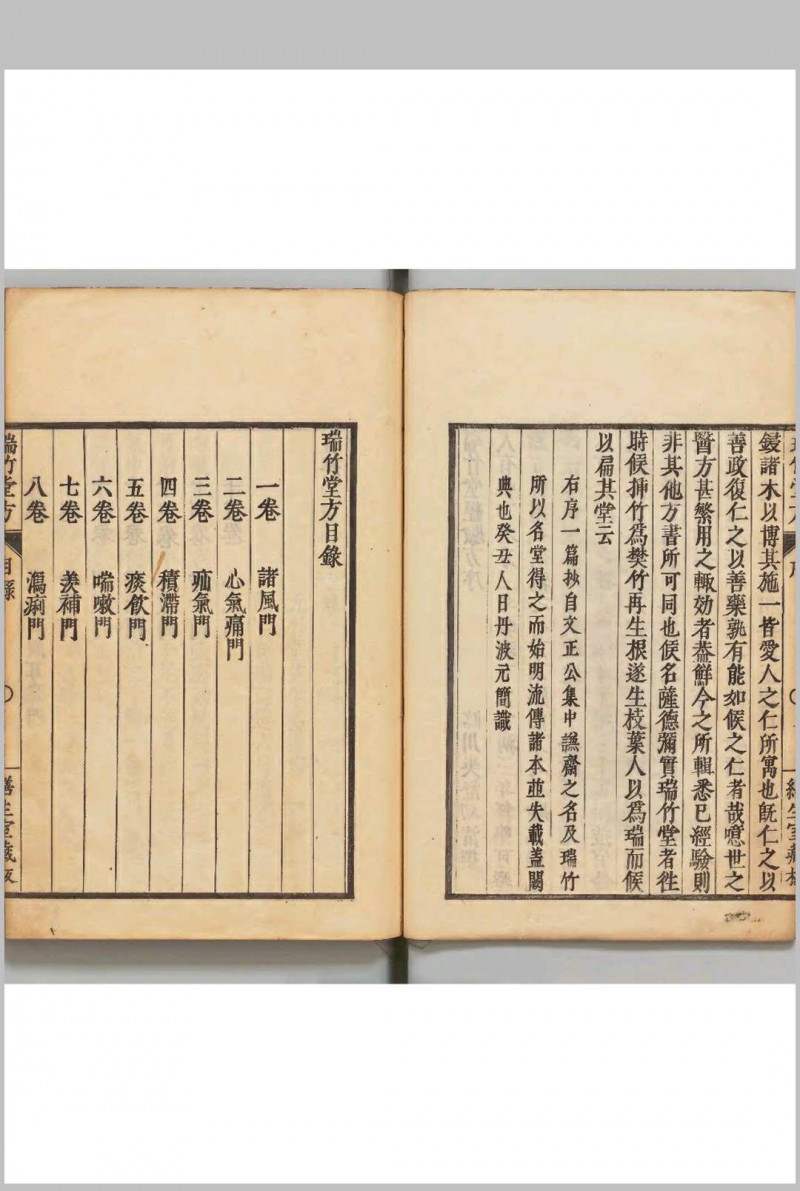 鋟諸木以博其施一皆愛人之仁所寓也旣仁之以
善政復仁之以善藥孰有能如候之仁者哉噫世之
醫方甚繁用之輙効者蓋鮮今之所輯悉已經驗則
非其他方書所可同也候名薩德彌實瑞竹堂者徃
時候揷竹爲樊竹再生根遂生枝葉人以爲瑞而候
以扁其堂云
右序一篇抄自文正公集中謙齋之名及瑞竹
所以名堂得之而始明流傳諸本並失載盖闕
典也癸丑人日丹波元簡識
瑞竹堂方目錄
一卷 諸風門
二卷 心氣痛門
三卷 疝氣門
四卷 積滯門
五卷 痰飮門
六卷 喘嗽門
七卷 羨補門
八卷 瀉痢門
瑞竹堂方 目錄